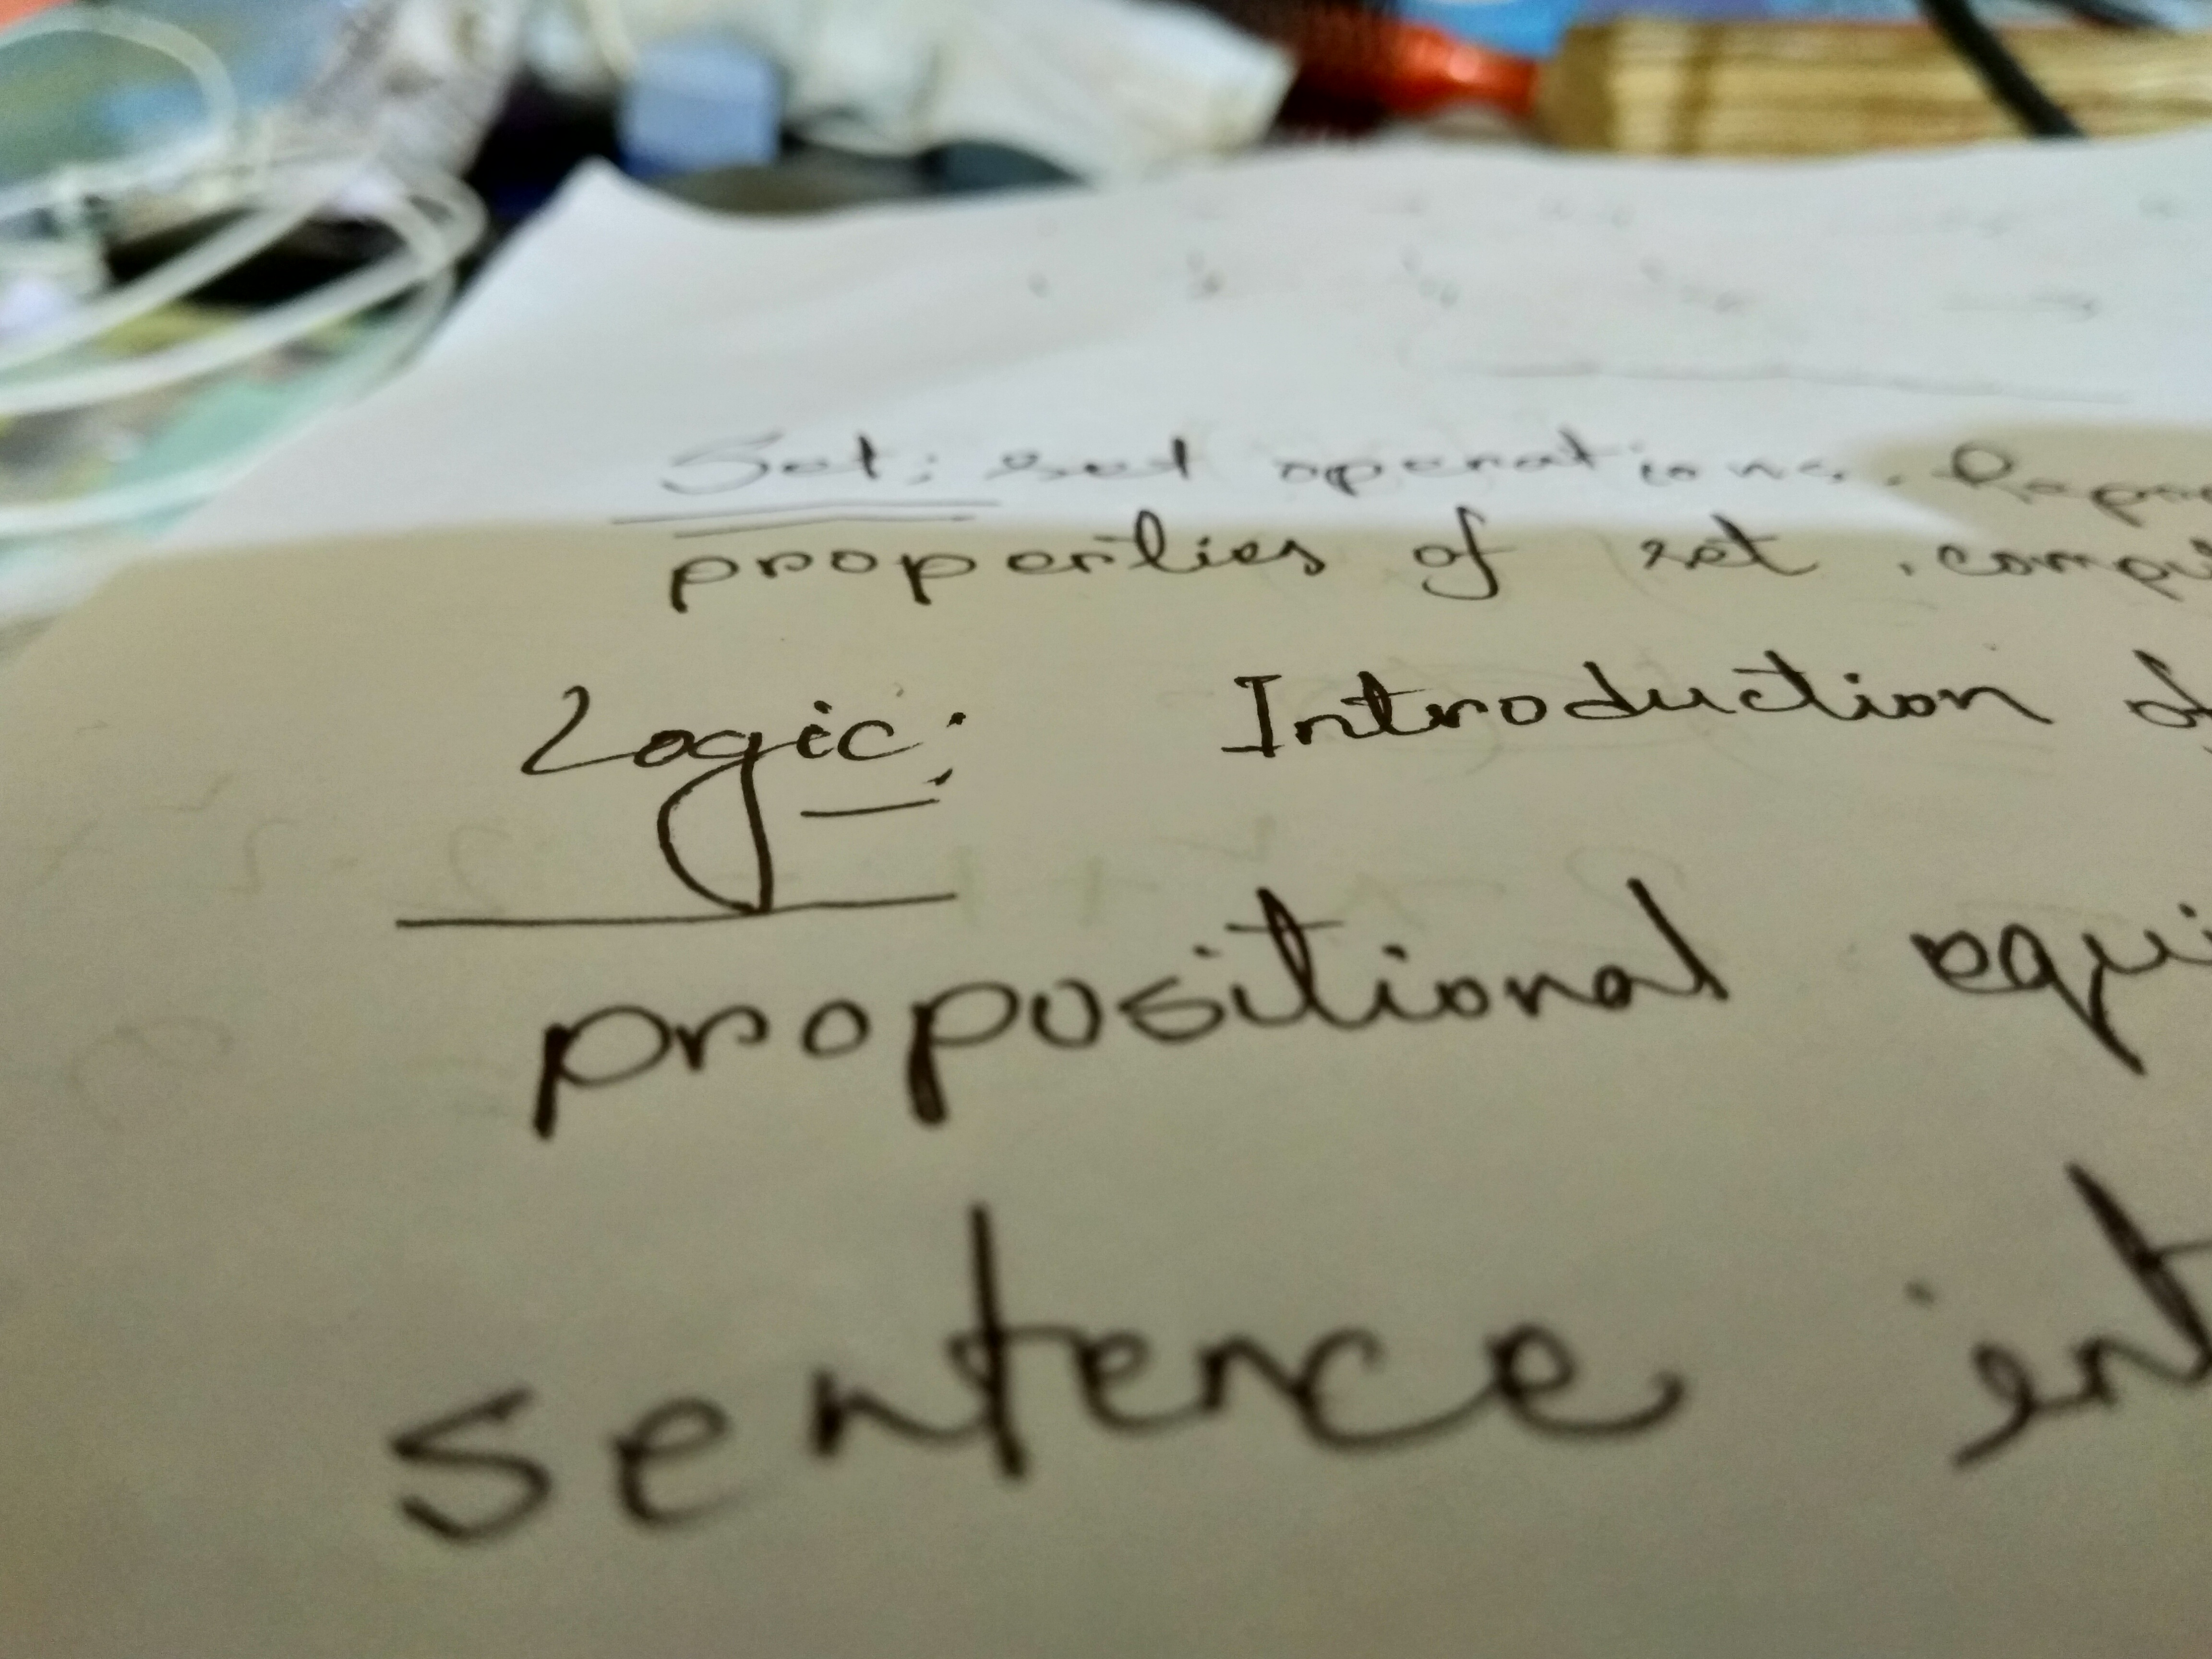 Set; set operations.
properties of set, compu
Logic: Introduction of
propositional equi
sentence int